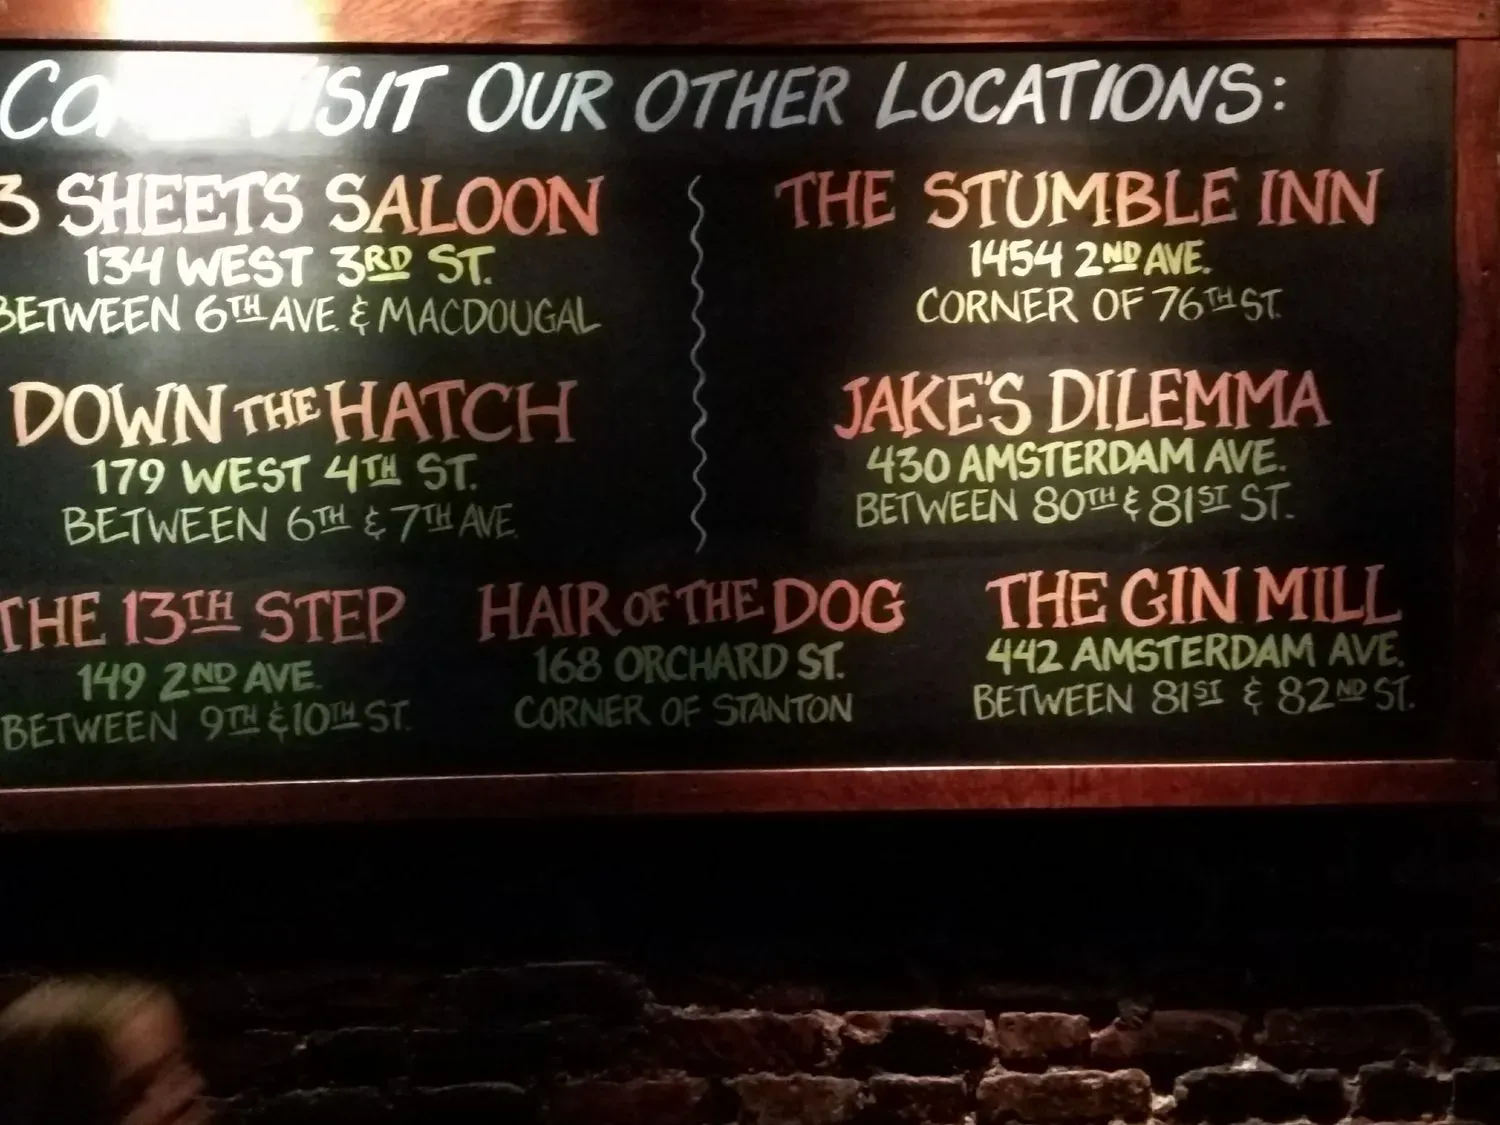 VISIT OUR OTHER LOCATIONS:
3 SHEETS SALOON
134 WEST 3RD ST.
BETWEEN 6TH AVE & MACDOUGAL
THE STUMBLE INN
1454 2ND AVE.
CORNER OF 76TH ST.
DOWN THE HATCH
179 WEST 4TH ST.
BETWEEN 6TH & 7TH AVE.
JAKE'S DILEMMA
430 AMSTERDAM AVE.
BETWEEN 80TH & 81ST ST.
THE 13TH STEP
149 2ND AVE.
BETWEEN 9TH & 10TH ST.
HAIR OF THE DOG
168 ORCHARD ST.
CORNER OF STANTON
THE GIN MILL
442 AMSTERDAM AVE.
BETWEEN 81ST & 82ND ST.